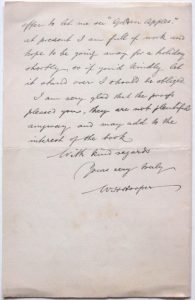 offer to let me see "Golden Apples."
at present I am full of work and
hope to be going away for a holiday
shortly, so if you'd kindly let
it stand over I should be obliged
I am very glad that the proofs
pleased you, they are not plentiful
anyway and may add to the
interest of the book
With kind regards
Yours very truly
W H Hooper